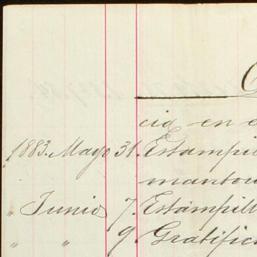 cia en e
1883. Mayo 31. Estampil
mantou
" Junio 7. Estampill
" " 9. Gratific